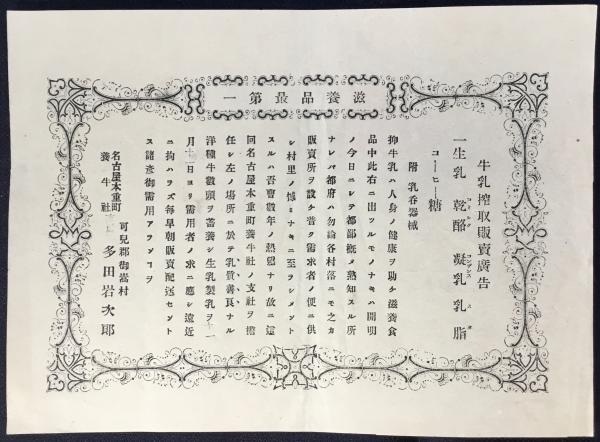 滋養品最第一
牛乳搾取販賣廣告
一生乳 乾酪 凝乳 乳脂
コーヒー糖
附 乳呑器械
抑牛乳ハ人身ノ健康ヲ助ケ滋養食
品中此右ニ出ツルモノナキハ開明
ノ今日ニシテ都鄙概メ熟知スル所
ナレバ都府ハ勿論各村落ニモ之カ
販賣所ヲ設ケ普ク需求者ノ便ニ供
シ村里ノ憾ミナキニ至ラシメント
スルハ吾曹數年ノ熱望ナリ故ニ這
回名古屋本重町養牛社ノ支社ヲ擔
任シ左ノ場所ニ於テ乳質善良ナル
洋種牛數頭ヲ蓄養シ生乳製乳ヲ
月 日ヨリ需用者ノ求ニ應シ遠近
ニ拘ハラズ毎早朝販賣配送セント
ス諸彦御需用アランヿヲ
名古屋本重町
養牛社
可兒郡御嵩村
多田岩次郎